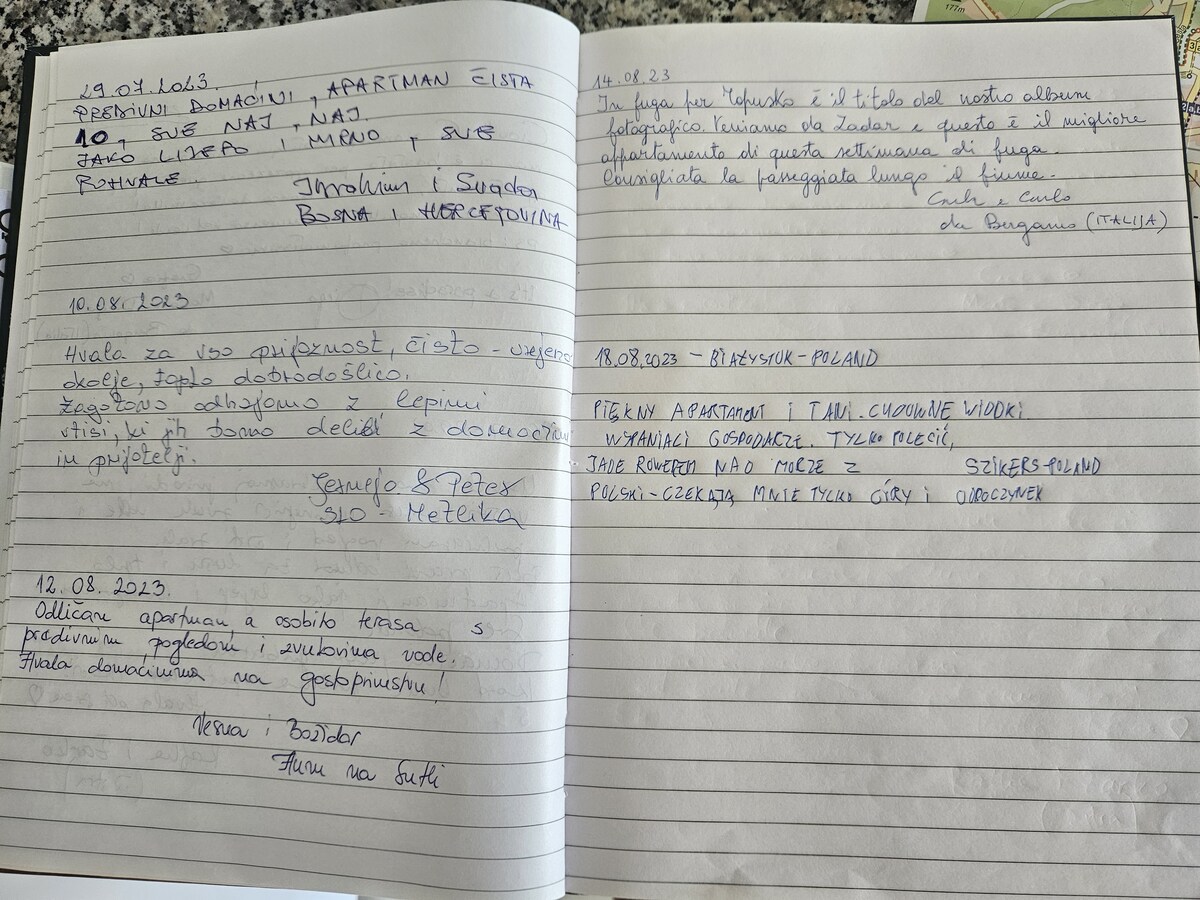 29.07.2023.
PREDIVNI DOMAĆINI, APARTMAN ČISTA
10, SVE NAJ, NAJ.
JAKO LIJEPO I MIRNO, SVE
POHVALE.
Ibrohim i Suada
BOSNA I HERCEGOVINA
10.08.2023
Hvala za vso prijaznost, čisto - urejeno
okolje, toplo dobrodošlico.
Zagotovo odhajamo z lepimi
vtisi, ki jih bomo delili z domačimi
in prijatelji.
Jerneja & Peter
SLO - Metlika
12.08.2023.
Odličan apartman a osobito terasa s
predivnim pogledom i zvukovima vode.
Hvala domaćinima na gostoprimstvu!
Vesna i Božidar
Hum na Sutli
177m
14.08.23
In fuga per Topusko è il titolo del nostro album
fotografico. Veniamo da Zadar e questo è il migliore
appartamento di questa settimana di fuga.
Consigliata la passeggiata lungo il fiume.
e Carlo
da Bergamo (ITALIJA)
18.08.2023 - BIAŁYSTOK - POLAND
PIĘKNY APARTAMENT I TANI. CUDOWNE WIDOKI
WSPANIALI GOSPODARZE. TYLKO POLECIĆ,
JADE ROWEREM NAD MORZE Z SZIKERS-POLAND
POLSKI - CZEKAJĄ MNIE TYLKO GÓRY I ODPOCZYNEK